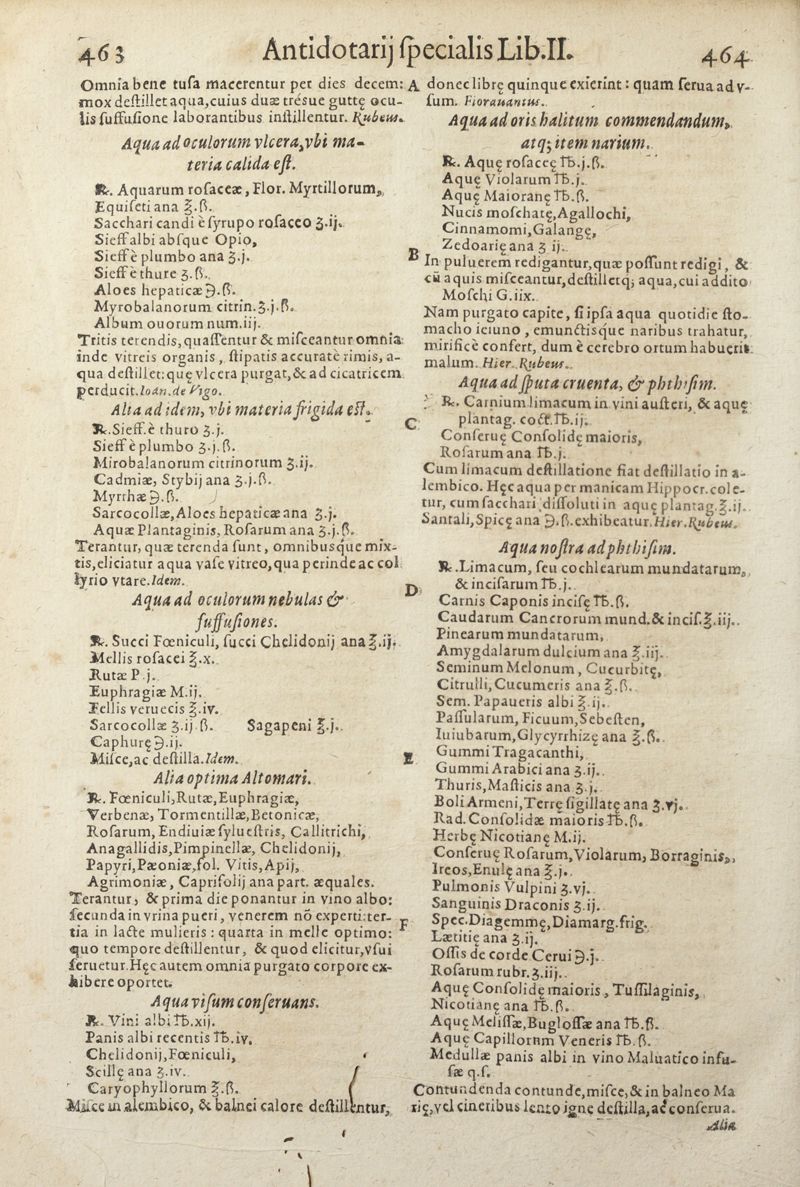 463
Antidotarij specialis Lib.II.
464
Omnia bene tusa macerentur per dies decem:
mox destillet aqua,cuius duæ trésue guttę ocu-
lis suffusione laborantibus instillentur. Rubeus.
Aqua ad oculorum vlcera,vbi ma-
teria calida est.
℞. Aquarum rosaceæ, Flor. Myrtillorum,
Equiseti ana ℥.ß.
Sacchari candi è syrupo rosaceo ʒ.ij.
Sieff albi absque Opio,
Sieff è plumbo ana ʒ.j.
Sieff è thure ʒ.ß.
Aloes hepaticæ ℈.ß.
Myrobalanorum citrin.ʒ.j.ß.
Album ouorum num.iij.
Tritis terendis,quassentur & misceantur omnia:
inde vitreis organis, stipatis accuratè rimis, a-
qua destillet:quę vlcera purgat,& ad cicatricem
perducit.Ioan.de Vigo.
Alia ad idem, vbi materia frigida est.
℞.Sieff.è thuro ʒ.j.
Sieff è plumbo ʒ.j.ß.
Mirobalanorum citrinorum ʒ.ij.
Cadmiæ, Stybij ana ʒ.j.ß.
Myrrhæ ℈.ß.
Sarcocollæ,Aloes hepaticæ ana ʒ.j.
Aquæ Plantaginis, Rosarum ana ʒ.j.ß.
Terantur, quæ terenda sunt, omnibusque mix-
tis,eliciatur aqua vase vitreo,qua perinde ac col
lyrio vtare.Idem.
Aqua ad oculorum nebulas &
suffusiones.
℞. Succi Fœniculi, succi Chelidonij ana ℥.ij.
Mellis rosacei ℥.x.
Rutæ P.j.
Euphragiæ M.ij.
Fellis veruecis ℥.iv.
Sarcocollæ ʒ.ij.ß. Sagapeni ℥.j.
Caphurę ℈.ij.
Misce,ac destilla.Idem.
Alia optima Altomari.
℞. Fœniculi,Rutæ,Euphragiæ,
Verbenæ, Tormentillæ,Betonicæ,
Rosarum, Endiuiæ syluestris, Callitrichi,
Anagallidis,Pimpinellæ, Chelidonij,
Papyri,Pæoniæ,fol. Vitis,Apij,
Agrimoniæ, Caprifolij ana part. æquales.
Terantur, & prima die ponantur in vino albo:
secunda in vrina pueri, venerem nō experti:ter-
tia in lacte mulieris: quarta in melle optimo:
quo tempore destillentur, & quod elicitur,vsui
seruetur.Hęc autem omnia purgato corpore ex-
hibere oportet.
Aqua visum conseruans.
℞. Vini albi ℔.xij.
Panis albi recentis ℔.iv.
Chelidonij,Fœniculi,
Scillę ana ʒ.iv.
Caryophyllorum ℥.ß.
Misce in alembico, & balnei calore destillentur,
A
B
C
D
E
F
donec librę quinque exierint: quam serua ad v-
sum. Fiorauantus.
Aqua ad oris halitum commendandum,
atq; item narium.
℞. Aquę rosaceę ℔.j.ß.
Aquę Violarum ℔.j.
Aquę Maioranę ℔.ß.
Nucis moschatę,Agallochi,
Cinnamomi,Galangę,
Zedoarię ana ʒ ij.
In puluerem redigantur,quæ possunt redigi, &
cū aquis misceantur,destilletq; aqua,cui addito
Moschi G.iix.
Nam purgato capite, si ipsa aqua quotidie sto-
macho ieiuno, emunctisque naribus trahatur,
mirificè confert, dum è cerebro ortum habuerit
malum. Hier. Rubeus.
Aqua ad sputa cruenta, & phthisim.
℞. Carnium limacum in vini austeri, & aquę
plantag. coct.℔.ij.
Conseruę Consolidę maioris,
Rosarum ana ℔.j.
Cum limacum destillatione fiat destillatio in a-
lembico. Hęc aqua per manicam Hippocr.cole-
tur, cum sacchari dissoluti in aquę plantag.℥.ij.
Santali,Spicę ana ℈.ß.exhibeatur.Hier.Rubeus.
Aqua nostra ad phthisim.
℞.Limacum, seu cochlearum mundatarum,
& incisarum ℔.j.
Carnis Caponis incisę ℔.ß.
Caudarum Cancrorum mund.& incis.℥.iij.
Pinearum mundatarum,
Amygdalarum dulcium ana ℥.iij.
Seminum Melonum, Cucurbitę,
Citrulli,Cucumeris ana ℥.ß.
Sem. Papaueris albi ℥.ij.
Passularum, Ficuum,Sebesten,
Iuiubarum,Glycyrrhizę ana ℥.ß.
Gummi Tragacanthi,
Gummi Arabici ana ʒ.ij.
Thuris,Masticis ana ʒ.j.
Boli Armeni,Terrę sigillatę ana ʒ.vj.
Rad.Consolidæ maioris ℔.ß.
Herbę Nicotianę M.ij.
Conseruę Rosarum,Violarum, Borraginis,
Ireos,Enulę ana ℥.j.
Pulmonis Vulpini ʒ.vj.
Sanguinis Draconis ʒ.ij.
Spec.Diagemmę,Diamarg.frig.
Lætitię ana ʒ.ij.
Ossis de corde Cerui ℈.j.
Rosarum rubr.ʒ.iij.
Aquę Consolidę maioris, Tussilaginis,
Nicotianę ana ℔.ß.
Aquę Melissæ,Buglossæ ana ℔.ß.
Aquę Capillorum Veneris ℔.ß.
Medullæ panis albi in vino Maluatico infu-
sæ q.s.
Contundenda contunde,misce,& in balneo Ma
rię,vel cineribus lento igne destilla,ac conserua.
Alia